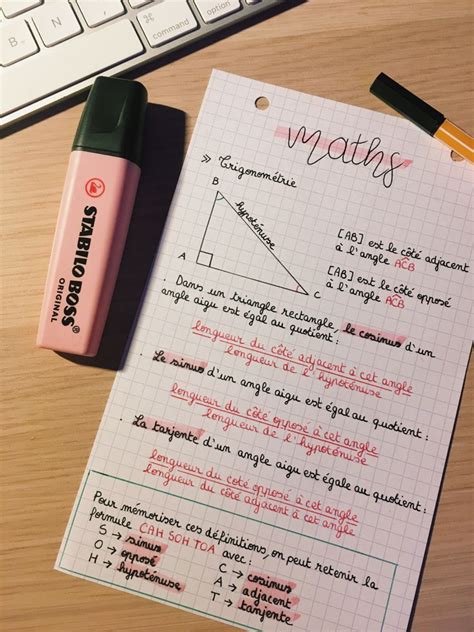 STABILO BOSS
ORIGINAL
maths
» Trigonométrie
B
hypoténuse
A
C
[AB] est le côté adjacent
à l'angle ACB
[AB] est le côté opposé
à l'angle ACB
. Dans un triangle rectangle, le cosinus d'un
angle aigu est égal au quotient :
longueur du côté adjacent à cet angle
longueur de l'hypoténuse
. Le sinus d'un angle aigu est égal au quotient :
longueur du côté opposé à cet angle
longueur de l'hypoténuse
. La tanjente d'un angle aigu est égale au quotient :
longueur du côté opposé à cet angle
longueur du côté adjacent à cet angle
Pour mémoriser ces définitions, on peut retenir la
formule CAH SOH TOA avec :
S → sinus
O → opposé
H → hypoténuse
C → cosinus
A → adjacent
T → tanjente